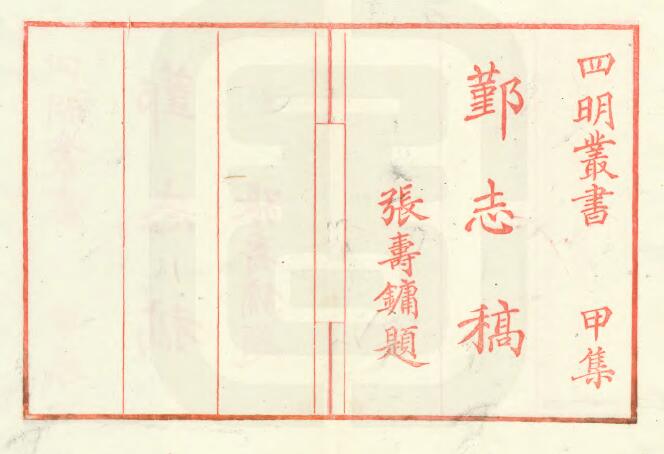 四明叢書 甲集
鄞志稿
張壽鏞題